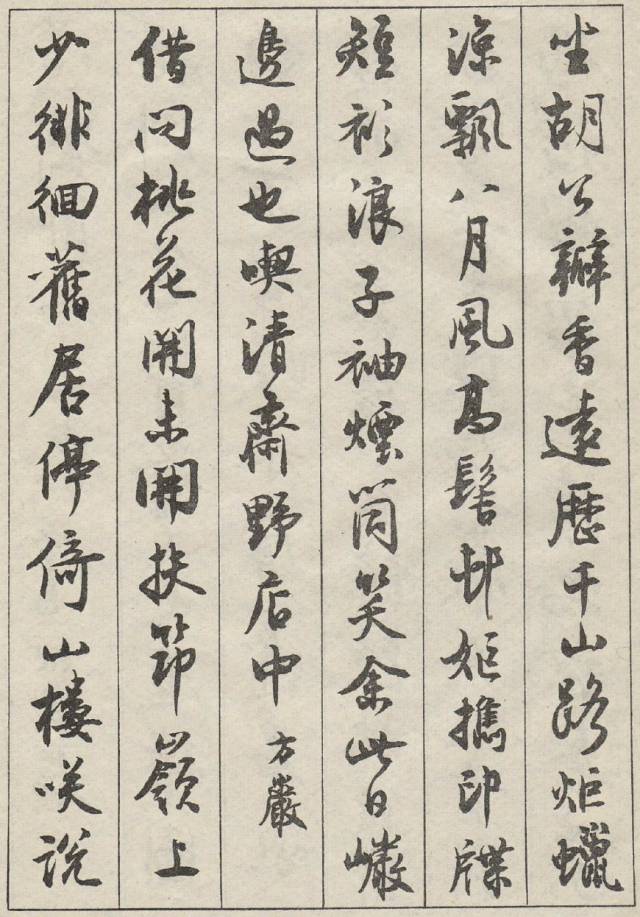 坐胡公瓣香遠歷千山路炬蠟
涼飄八月風高髻邨姬攜印牒
短衫浪子袖煙筒笑余此日巖
邊過也喫清齋野店中方巖
借問桃花開未開扶筇嶺上
少徘徊舊居停倚山樓咲說